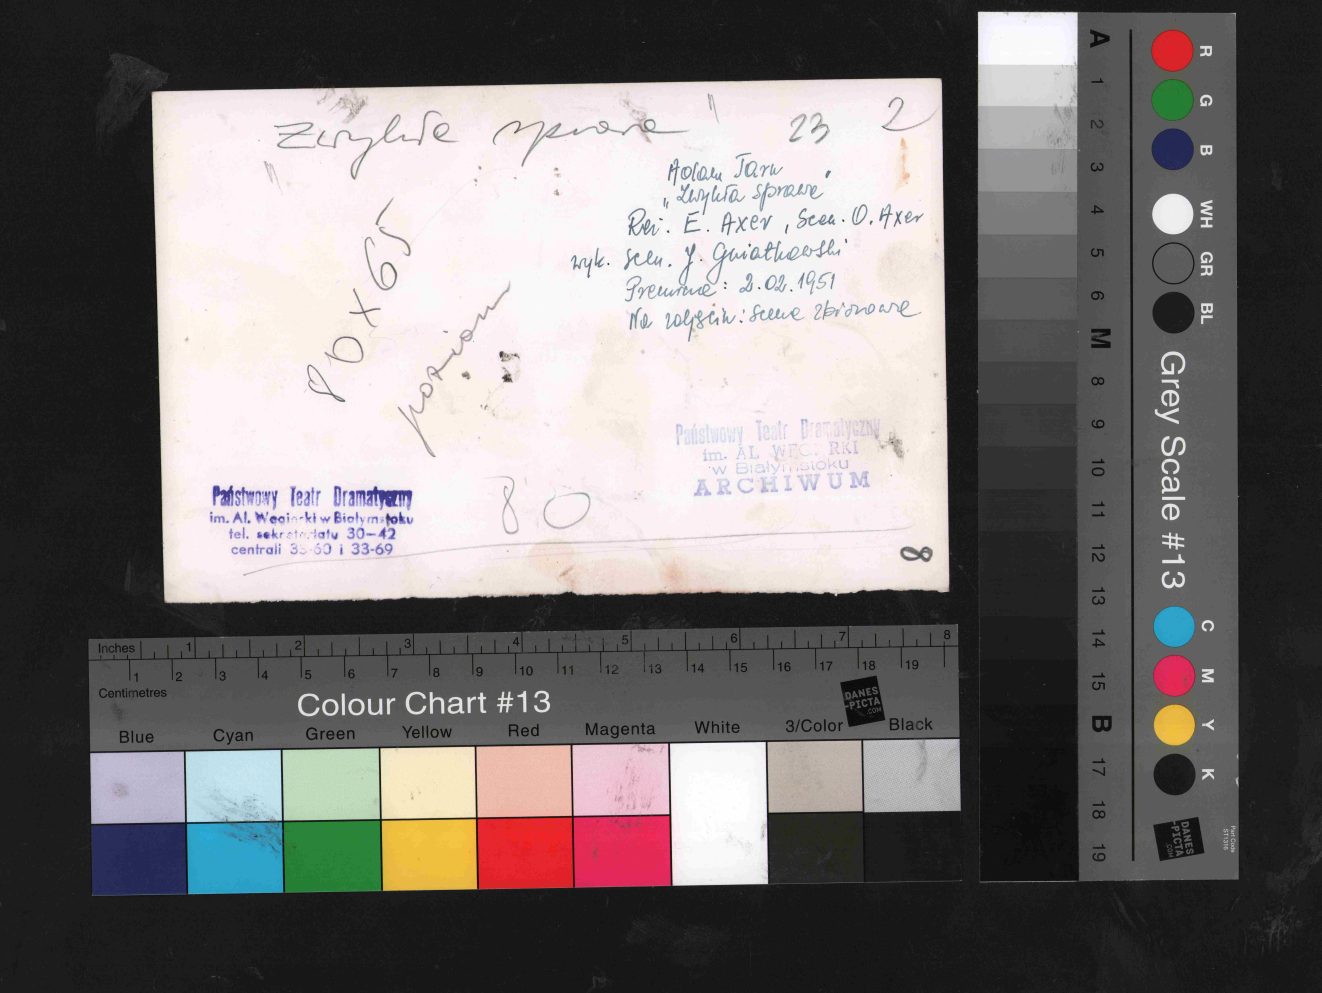 "Zwykła sprawa"
23
2
Adam Tarn
„Zwykła sprawa"
Reż. E. Axer, Scen. O. Axer
wyk. scen. J. Gniatkowski
Premiera: 2.02.1951
Na zdjęciu: scena zbiorowa
80 x 65
poziom
Państwowy Teatr Dramatyczny
im. AL WĘG. RKI
w Białymstoku
ARCHIWUM
Państwowy Teatr Dramatyczny
im. Al. Węgierki w Białymstoku
tel. sekretariatu 30-42
centrali 33-60 i 33-69
80
8
Inches 1 2 3 4 5 6 7 8
1 2 3 4 5 6 7 8 9 10 11 12 13 14 15 16 17 18 19
Centimetres
Colour Chart #13
DANES
-PICTA
.COM
Blue Cyan Green Yellow Red Magenta White 3/Color Black
A 1 2 3 4 5 6 M 8 9 10 11 12 13 14 15 B 17 18 19
Grey Scale #13
R G B WH GR BL C M Y K
DANES
-PICTA
.COM
Part Code
ST1316